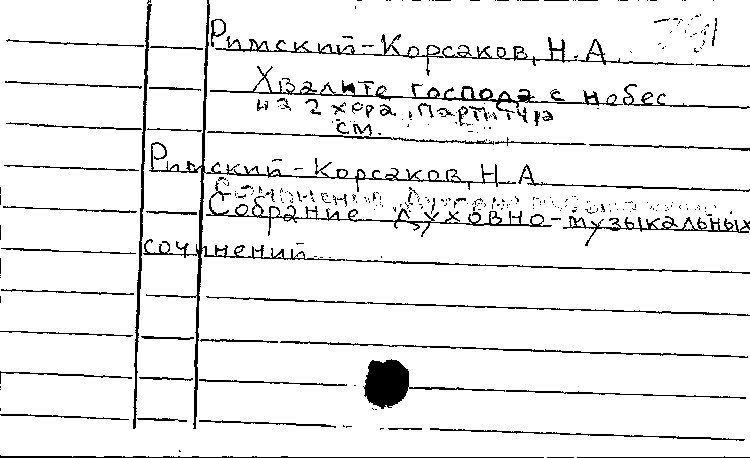 Римский-Корсаков, Н.А.
Хвалите Господа с небес
на 2 хора, партитура
см.
Римский-Корсаков, Н.А.
Собрание духовно-музыкальных
сочинений